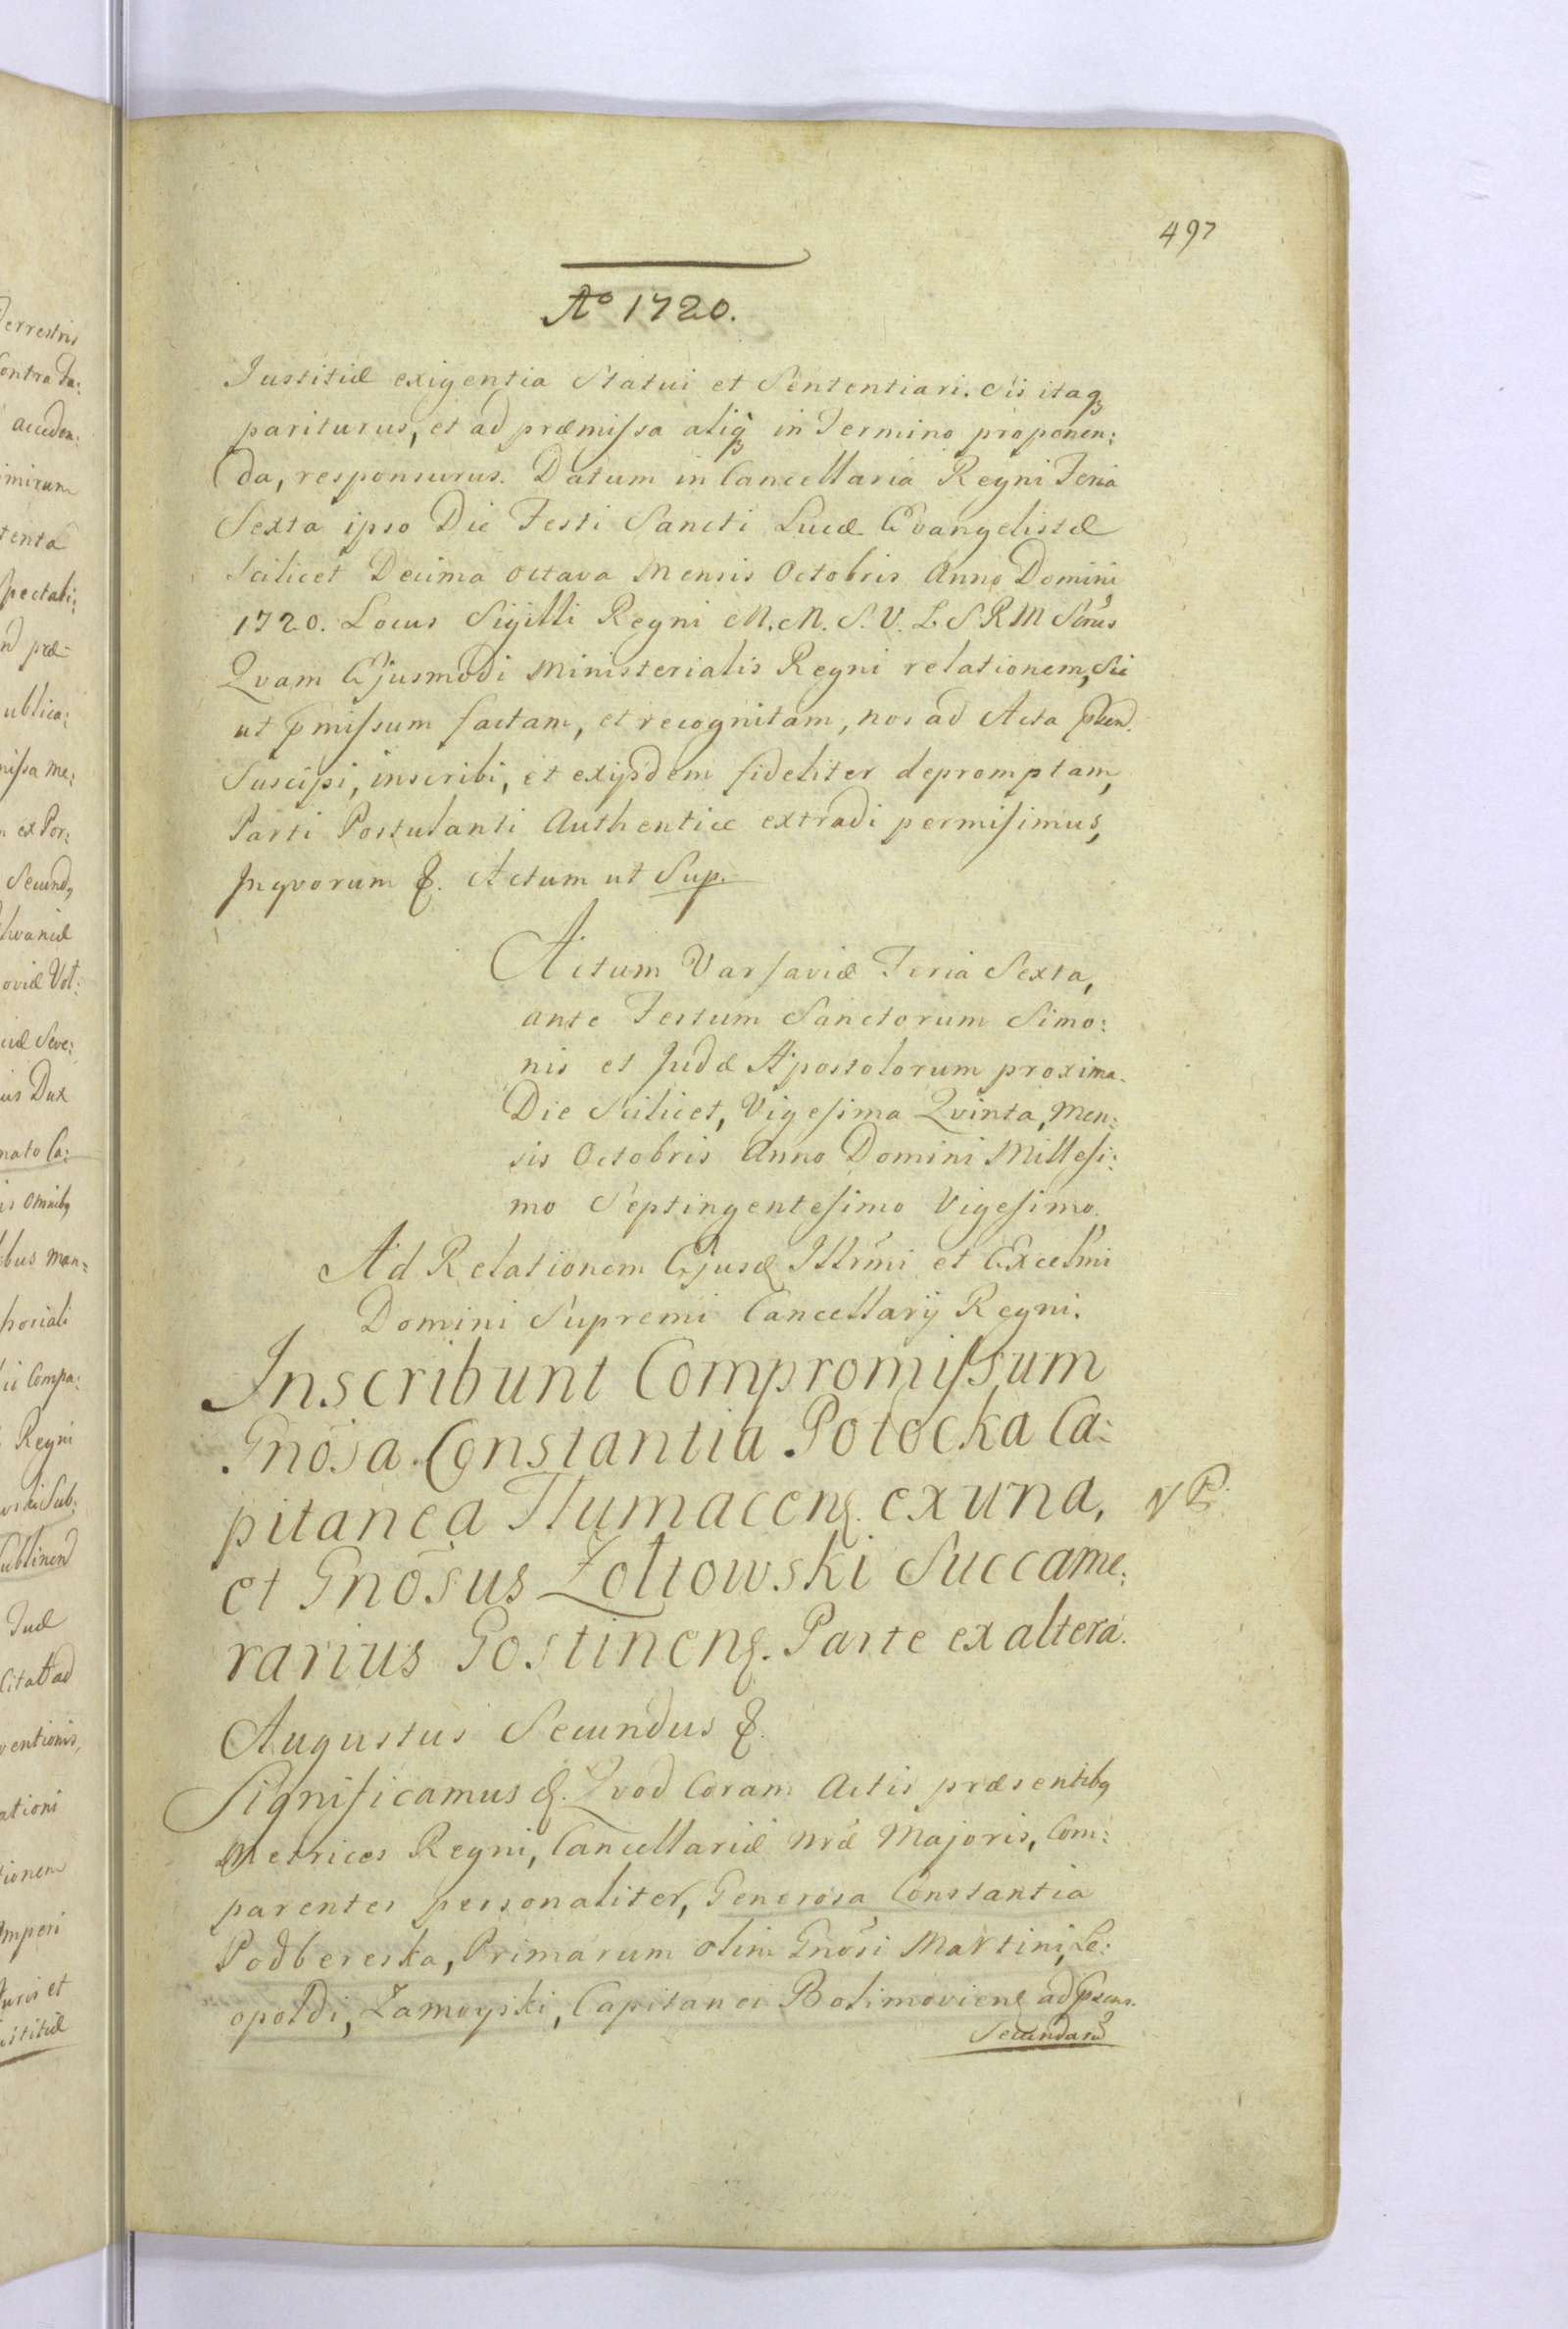 497
Aº 1720.
Justitiæ exigentia Statui et Sententiari. Sis itaqꝫ
pariturus, et ad præmissa aliqꝫ in Termino proponen:
da, responsurus. Datum in Cancellaria Regni Feria
Sexta ipso Die Festi Sancti Lucæ Evangelistæ
Scilicet Decima octava Mensis Octobris Anno Domini
1720. Locus Sigilli Regni M. M. S. V. L. S. R M Srius
Qvam Ejusmodi Ministerialis Regni relationem, Sic
ut pmissum factam, et recognitam, nos ad Acta
Suscipi, inscribi, et exijsdem fideliter depromptam,
Parti Postulanti Authentice extradi permisimus,
Inqvorum &. Actum ut Sup.
Actum Varsaviæ Feria Sexta,
ante Festum Sanctorum Simo:
nis et Judæ Apostolorum proxima.
Die Scilicet, Vigesima Qvinta, Men:
sis Octobris Anno Domini Millesi:
mo Septingentesimo Vigesimo.
Ad Relationem Ejusd Illrmi et Excelmi
Domini Supremi Cancellarij Regni.
Inscribunt Compromissum
Gnosa Constantia Potocka Ca:
pitanea Tlumacens. ex una,
et Gnosus Zoltowski Succame:
rarius Gostinens. Parte ex altera.
Augustus Secundus &.
Significamus &. Qvod Coram Actis præsentibꝫ
Metrices Regni, Cancellariæ nræ Majoris, Com:
parentes personaliter, Generosa Constantia
Podbereska, Primarum olim Gnosi Martini, Le:
opoldi, Zamoyski, Capitanei Bolimoviens ad Præns.
Secundarũ